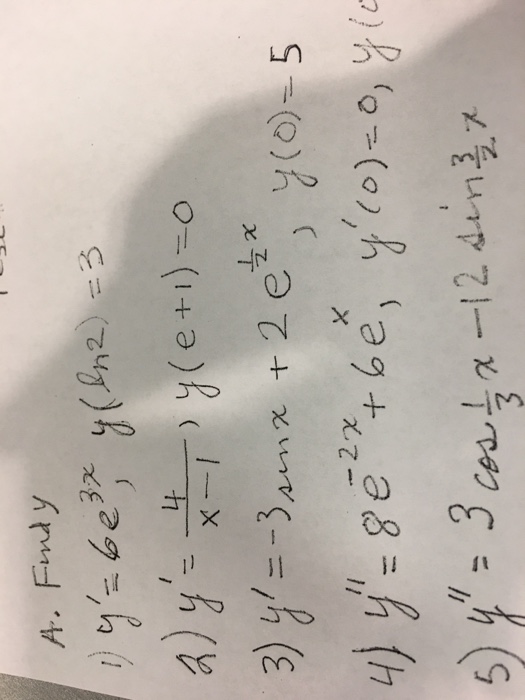 A. Find y
1) y' = 6e^{3x}, y(ln2) = 3
2) y' = \frac{4}{x-1}, y(e+1) = 0
3) y' = -3 sin x + 2e^{\frac{1}{2}x}, y(0) = 5
4) y'' = 8e^{-2x} + 6e^{x}, y'(0) = 0, y(0
5) y'' = 3 cos \frac{1}{3} x - 12 sin \frac{3}{2} x